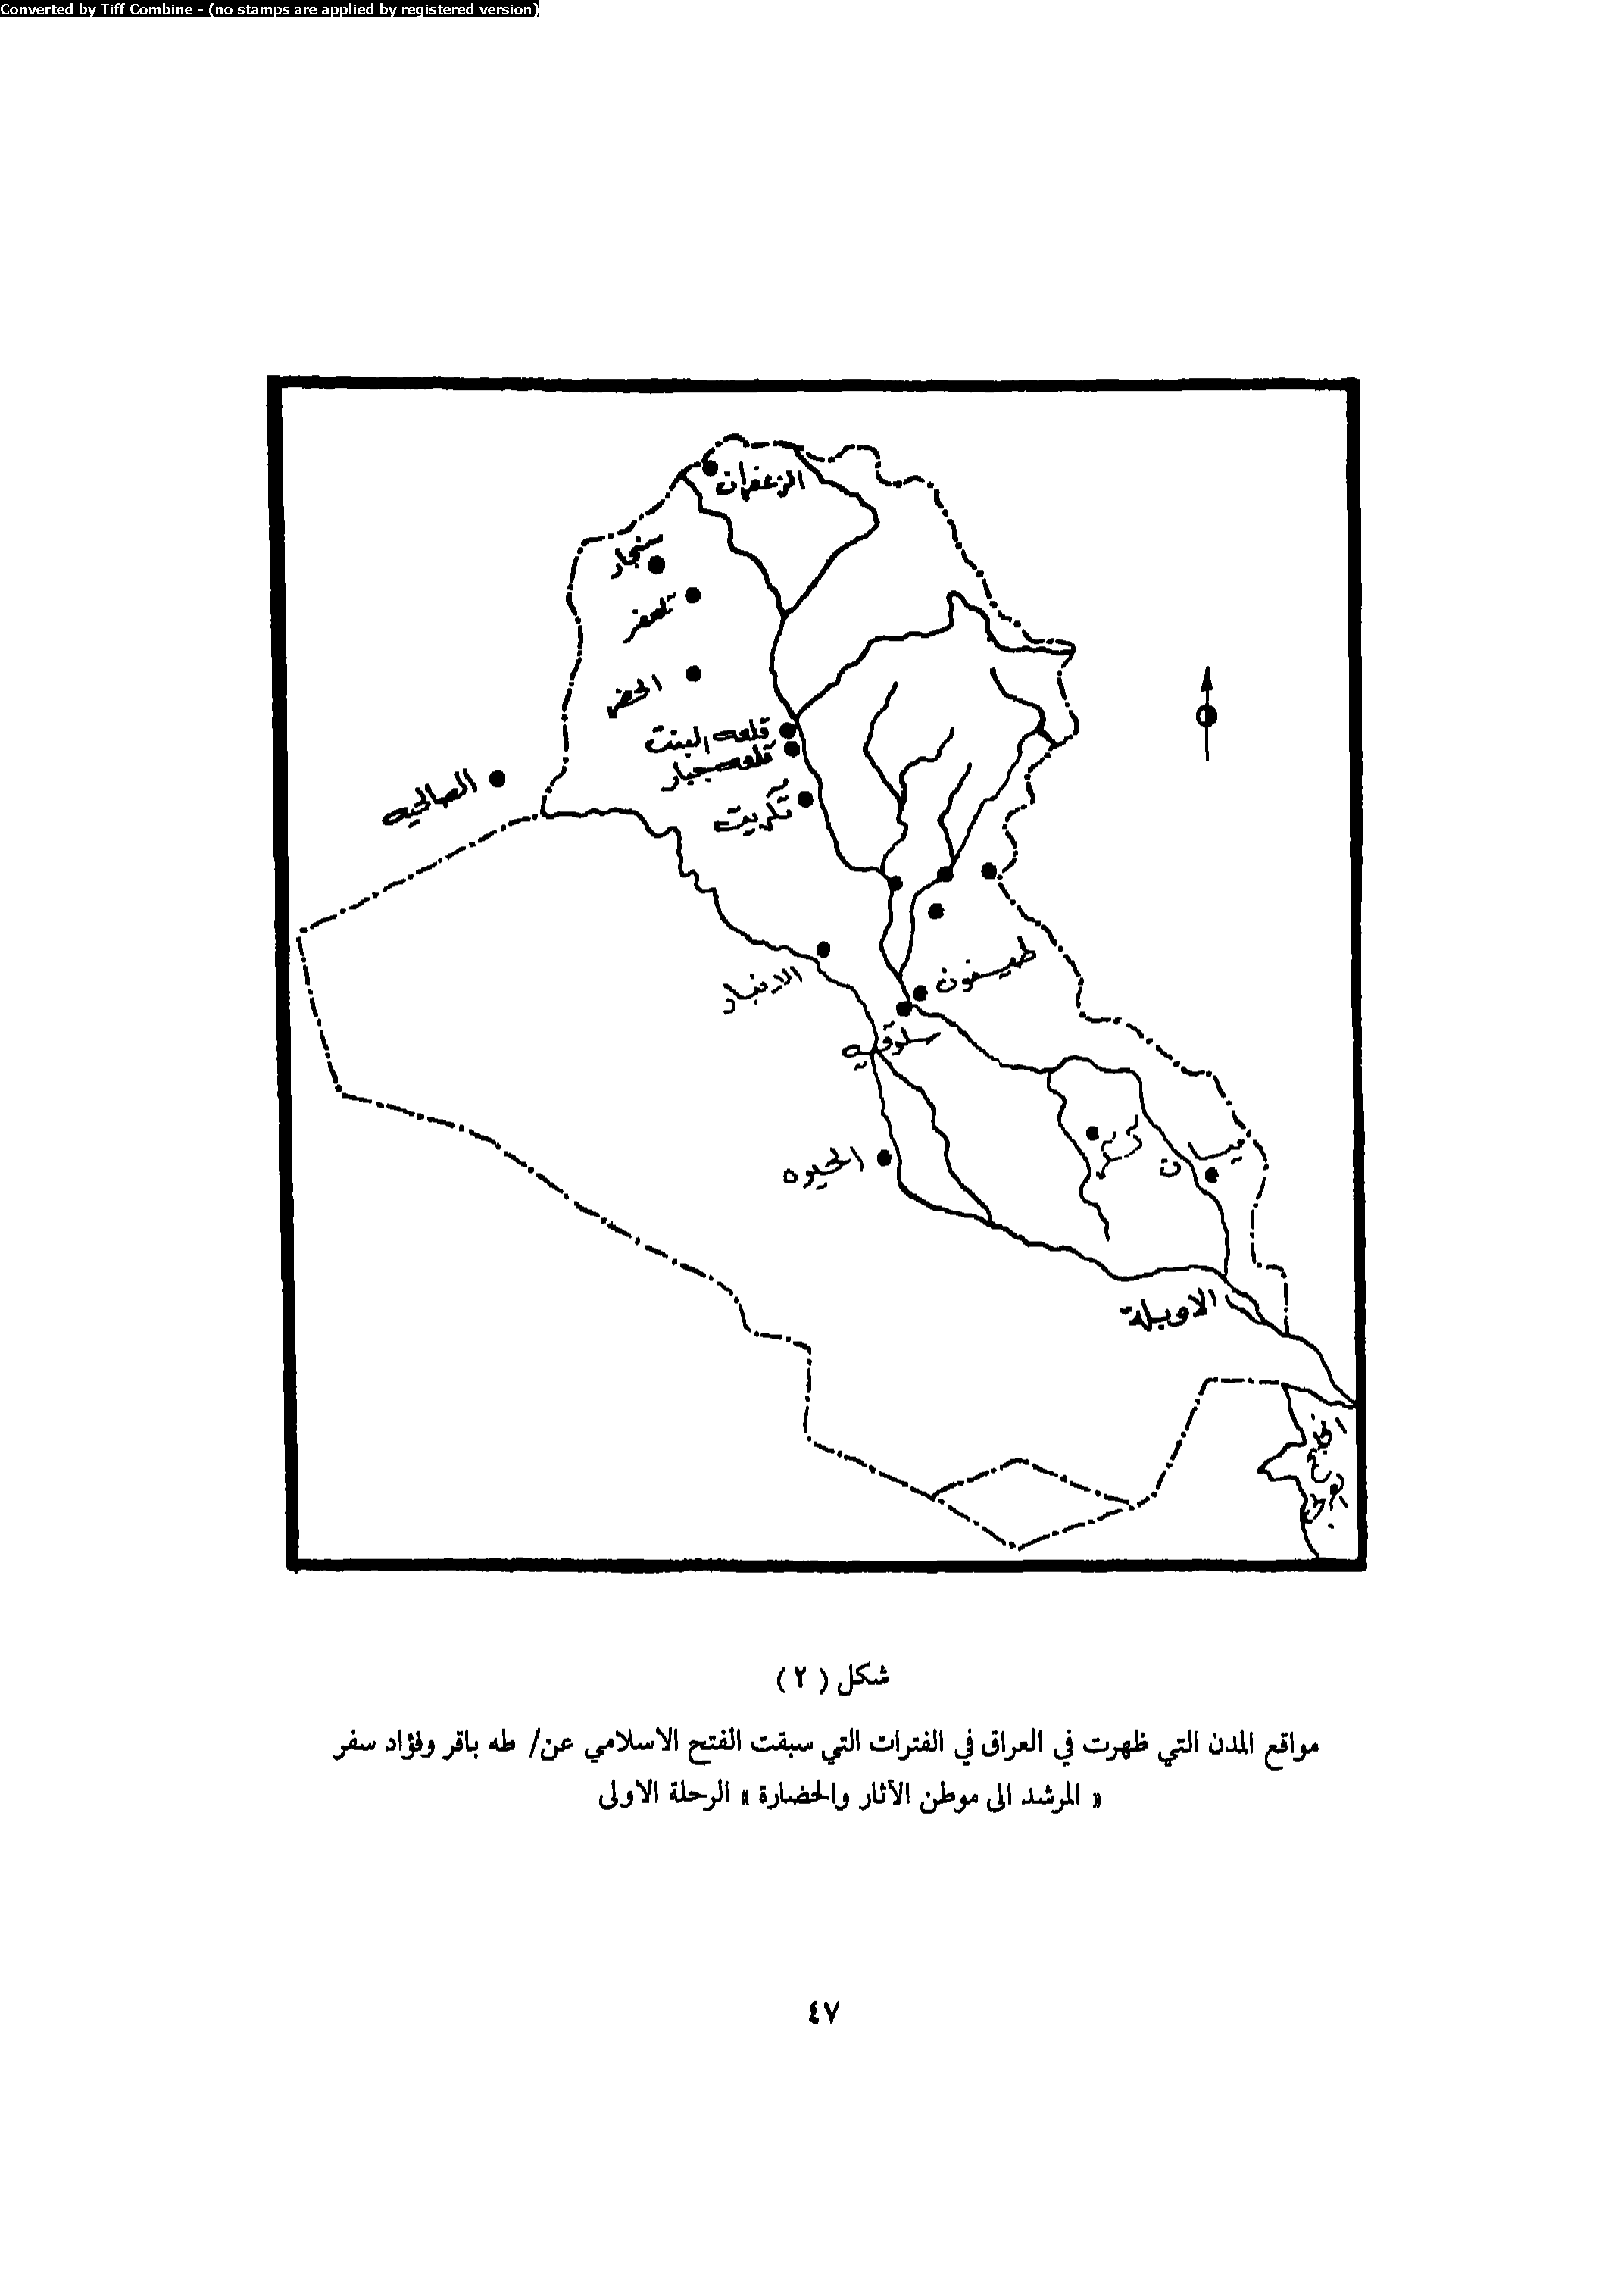 Converted by Tiff Combine - (no stamps are applied by registered version)
الزعفران
سنجار
تلعفر
الحضر
قلعه البنت
قلعه جبار
تكريت
الصالحيه
طيسفون
الانبار
سلوقيه
الحيره
كسكر
ميسان
الاوبلة
شكل (٢)
مواقع المدن التي ظهرت في العراق في الفترات التي سبقت الفتح الاسلامي عن/ طه باقر وفؤاد سفر
« المرشد الى موطن الأثار والحضارة » الرحلة الاولى
٤٧